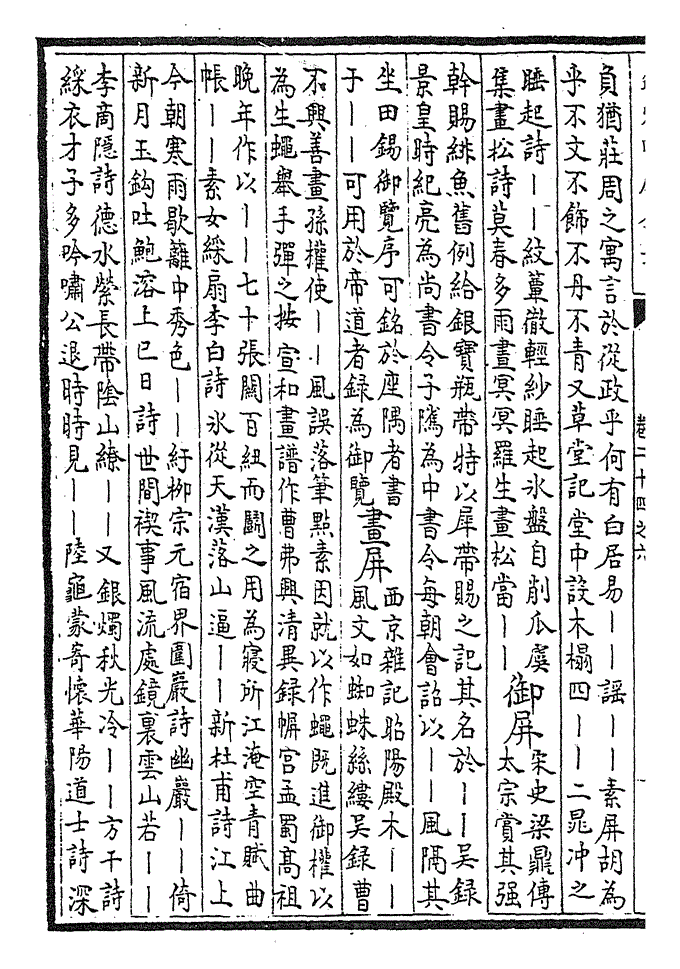 卷二十四之六
負猶莊周之寓言於從政乎何有白居易｜｜謠｜｜素屏胡為
乎不文不飾不丹不青又草堂記堂中設木榻四｜｜二晁冲之
睡起詩｜｜紋簟徹輕紗睡起氷盤自削瓜虞
集畫松詩莫春多雨畫冥冥羅生畫松當｜｜
御屏
宋史梁鼎傳
太宗賞其强
幹賜緋魚舊例給銀寶瓶帶特以犀帶賜之記其名於｜｜吳録
景皇時紀亮為尚書令子隲為中書令每朝會詔以｜｜風隔其
坐田錫御覽序可銘於座隅者書
于｜｜可用於帝道者録為御覽
畫屏
西京雜記昭陽殿木｜｜
風文如蜘蛛絲縷吳録曹
不興善畫孫權使｜｜風誤落筆點素因就以作蠅既進御權以
為生蠅舉手彈之按宣和畫譜作曹弗興清異録幈宫孟蜀高祖
晚年作以｜｜七十張關百紐而鬭之用為寢所江淹空青賦曲
帳｜｜素女綵扇李白詩氷從天漢落山逼｜｜新杜甫詩江上
今朝寒雨歇籬中秀色｜｜紆柳宗元宿界圍巖詩幽巖｜｜倚
新月玉鈎吐鮑溶上巳日詩世間禊事風流處鏡裏雲山若｜｜
李商隱詩德水縈長帶陰山繚｜｜又銀燭秋光冷｜｜方干詩
綵衣才子多吟嘯公退時時見｜｜陸龜蒙寄懷華陽道士詩深